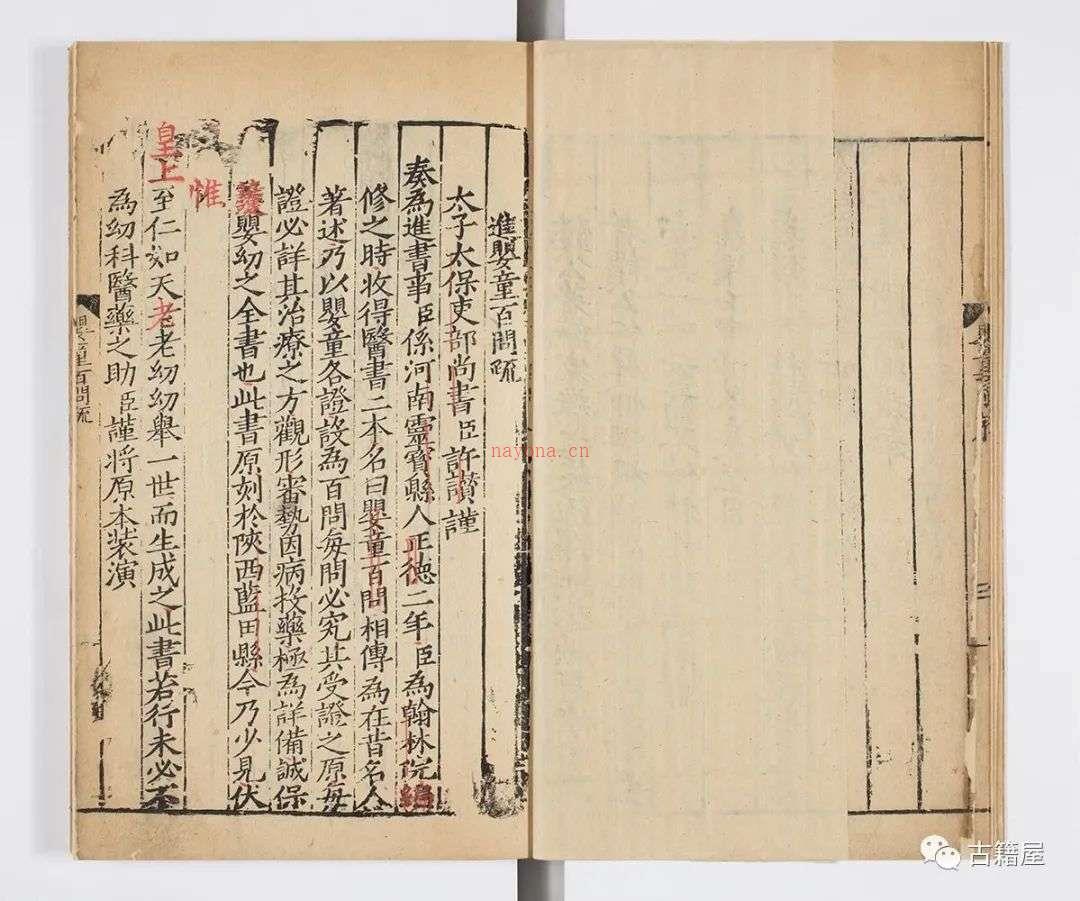 進嬰童百問疏
太子太保吏部尚書臣許讃謹
奏為進書事臣係河南靈寳縣人正德二年臣為翰林院編
修之時收得醫書二本名曰嬰童百問相傳為在昔名人
著述乃以嬰童各證設為百問每問必究其受證之原每
證必詳其治療之方觀形審勢因病投藥極為詳備誠保
䕶嬰幼之全書也此書原刻於陝西藍田縣今乃少見伏
惟
皇上至仁如天老老幼幼舉一世而生成之此書若行未必不
為幼科醫藥之助臣謹将原本装演
嬰童百問疏
nayona.cn
古籍屋